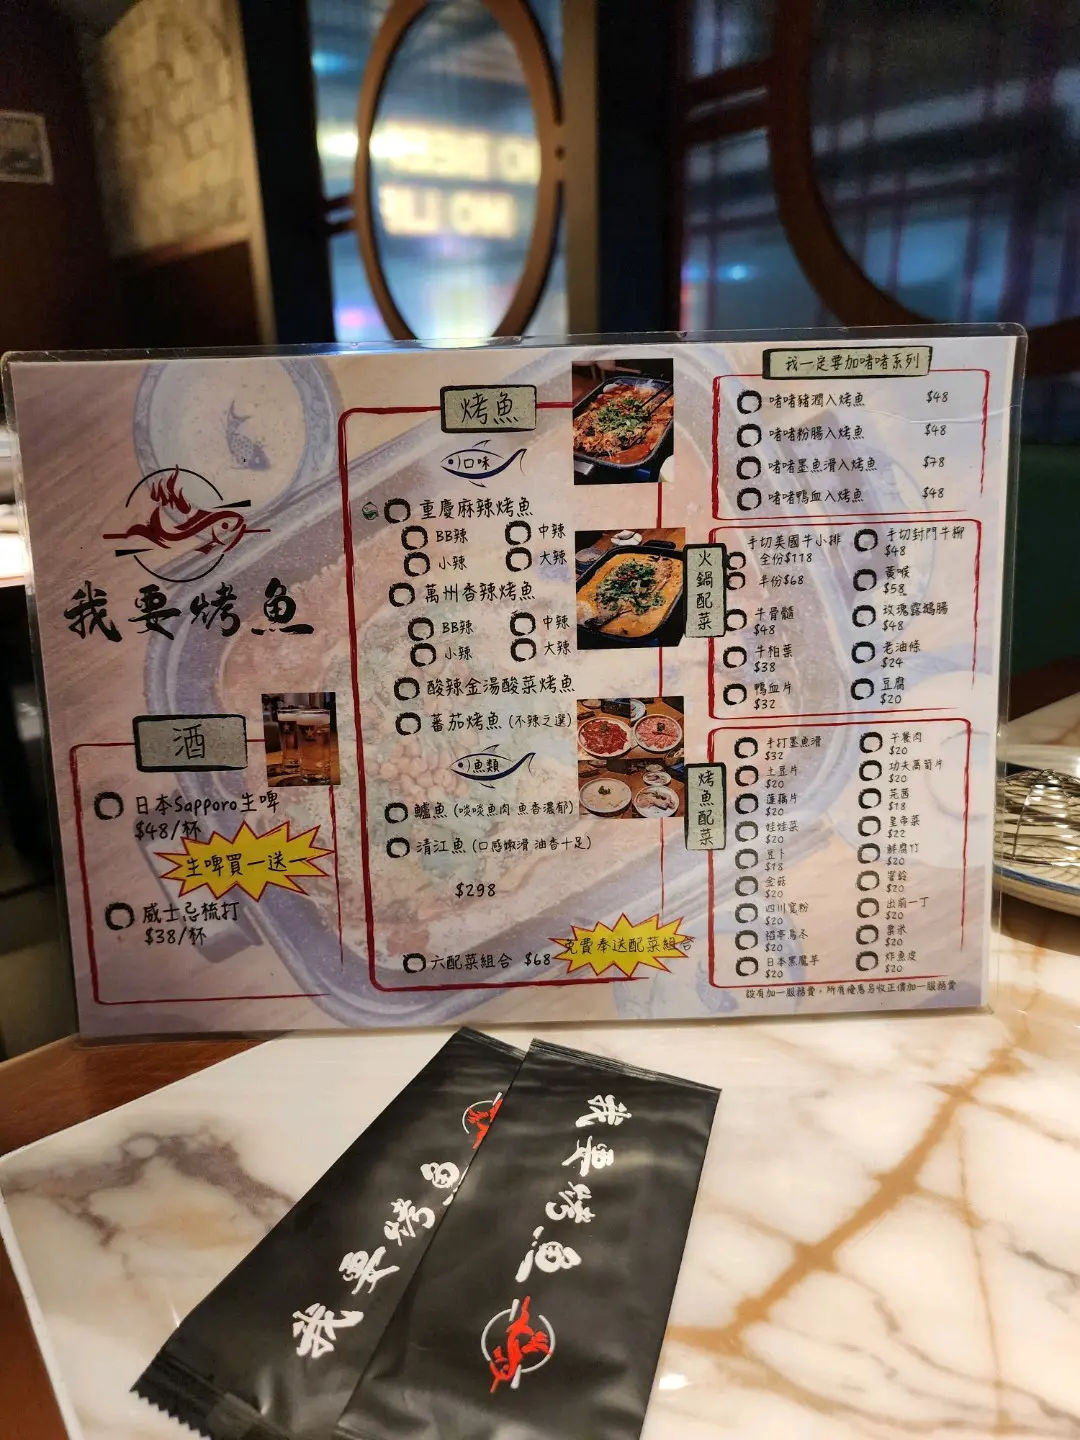 我要烤魚
酒
日本Sapporo生啤
$48/杯
生啤買一送一
威士忌梳打
$38/杯
烤魚
口味
重慶麻辣烤魚
BB辣 中辣
小辣 大辣
萬州香辣烤魚
BB辣 中辣
小辣 大辣
酸辣金湯酸菜烤魚
蕃茄烤魚 (不辣之選)
魚類
鱸魚 (啖啖魚肉 魚香濃郁)
清江魚 (口感嫩滑 油香十足)
$298
六配菜組合 $68
免費奉送配菜組合
我一定要加啫啫系列
啫啫豬潤入烤魚 $48
啫啫粉腸入烤魚 $48
啫啫墨魚滑入烤魚 $78
啫啫鴨血入烤魚 $48
火鍋配菜
手切美國牛小排
全份$118
半份$68
牛骨髓
$48
牛柏葉
$38
鴨血片
$32
手切封門牛柳
$48
黃喉
$58
玫瑰露鵝腸
$48
老油條
$24
豆腐
$20
烤魚配菜
手打墨魚滑
$32
土豆片
$20
蓮藕片
$20
娃娃菜
$20
豆卜
$18
金菇
$20
四川寬粉
$20
稻亭烏冬
$20
日本黑魔芋
$20
午餐肉
$20
功夫萵筍片
$20
芫茜
$18
皇帝菜
$22
鮮腐竹
$20
響鈴
$20
出前一丁
$20
粟米
$20
炸魚皮
$20
設有加一服務費，所有優惠另收正價加一服務費
我要烤魚
我要烤魚